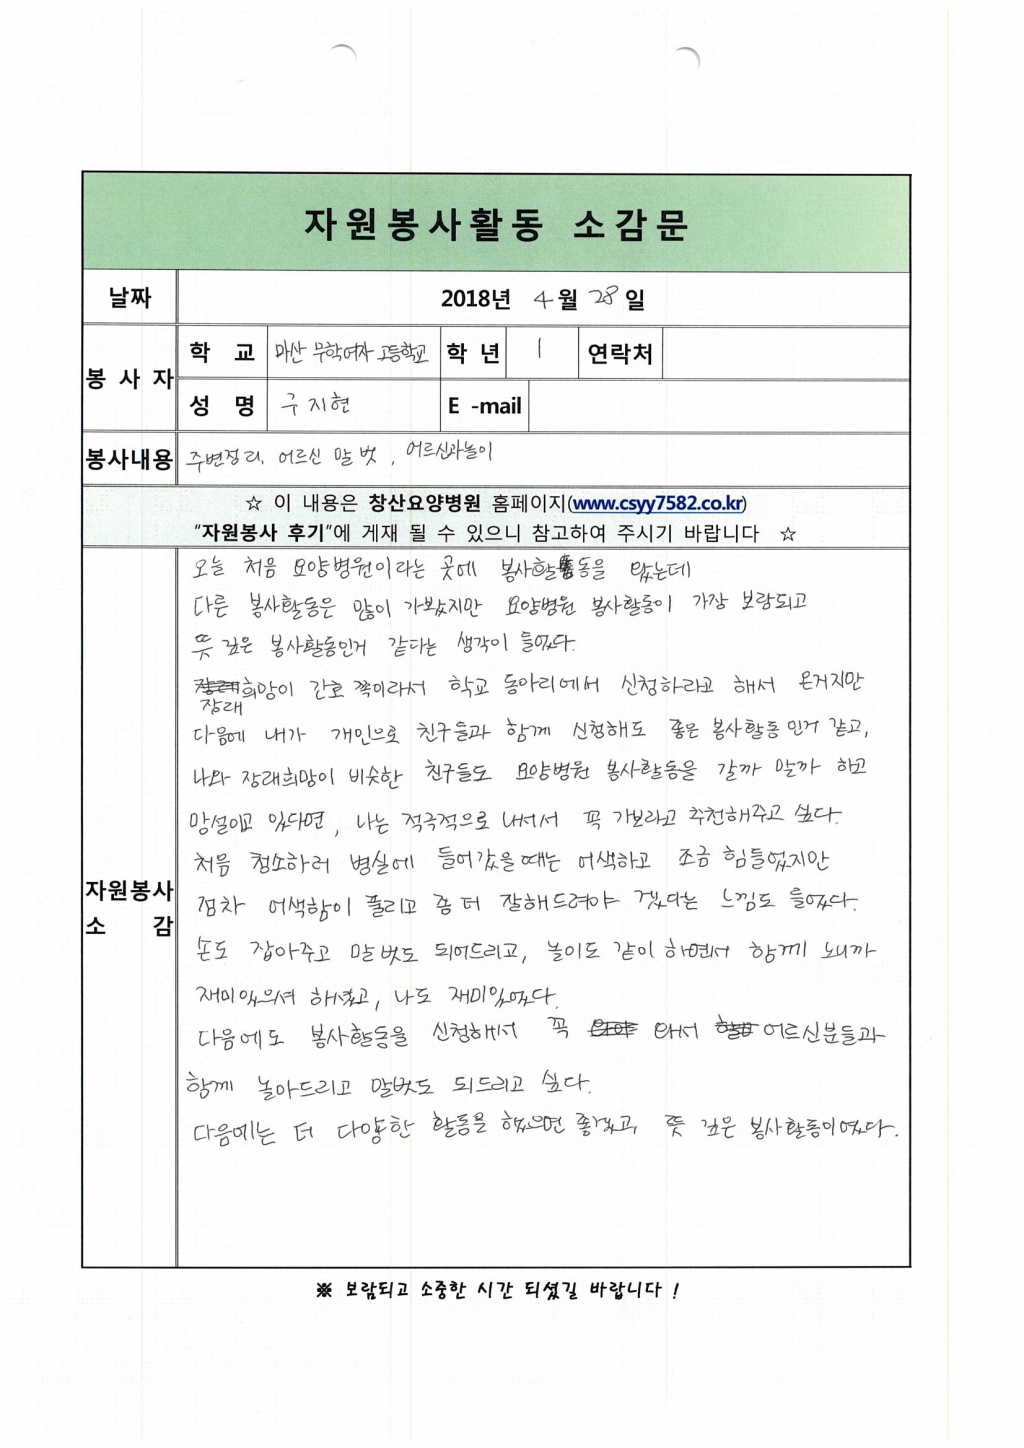 자원봉사활동 소감문
날짜 2018년 4월 28일
봉사자 학교 마산 무학여자 고등학교 학년 1 연락처
성명 구지현 E-mail
봉사내용 주변정리, 어르신 말 벗, 어르신과놀이
☆ 이 내용은 창산요양병원 홈페이지(www.csyy7582.co.kr)
"자원봉사 후기"에 게재 될 수 있으니 참고하여 주시기 바랍니다 ☆
자원봉사 소감
오늘 처음 요양병원이라는 곳에 봉사활동을 왔는데
다른 봉사활동은 많이 가봤지만 요양병원 봉사활동이 가장 보람되고
뜻 깊은 봉사활동인거 같다는 생각이 들었다.
장래희망이 간호 쪽이라서 학교 동아리에서 신청하라고 해서 온거지만
다음에 내가 개인으로 친구들과 함께 신청해도 좋은 봉사활동 인거 같고,
나와 장래희망이 비슷한 친구들도 요양병원 봉사활동을 갈까 말까 하고
망설이고 있다면, 나는 적극적으로 나서서 꼭 가보라고 추천해주고 싶다.
처음 청소하러 병실에 들어갔을때는 어색하고 조금 힘들었지만
점차 어색함이 풀리고 좀 더 잘해드려야 겠다는 느낌도 들었다.
손도 잡아주고 말 벗도 되어드리고, 놀이도 같이 하면서 함께 노니까
재미있으셔 하셨고, 나도 재미있었다.
다음에도 봉사활동을 신청해서 꼭 와서 어르신분들과
함께 놀아드리고 말벗도 되드리고 싶다.
다음에는 더 다양한 활동을 했으면 좋겠고, 뜻 깊은 봉사활동이였다.
※ 보람되고 소중한 시간 되셨길 바랍니다 !